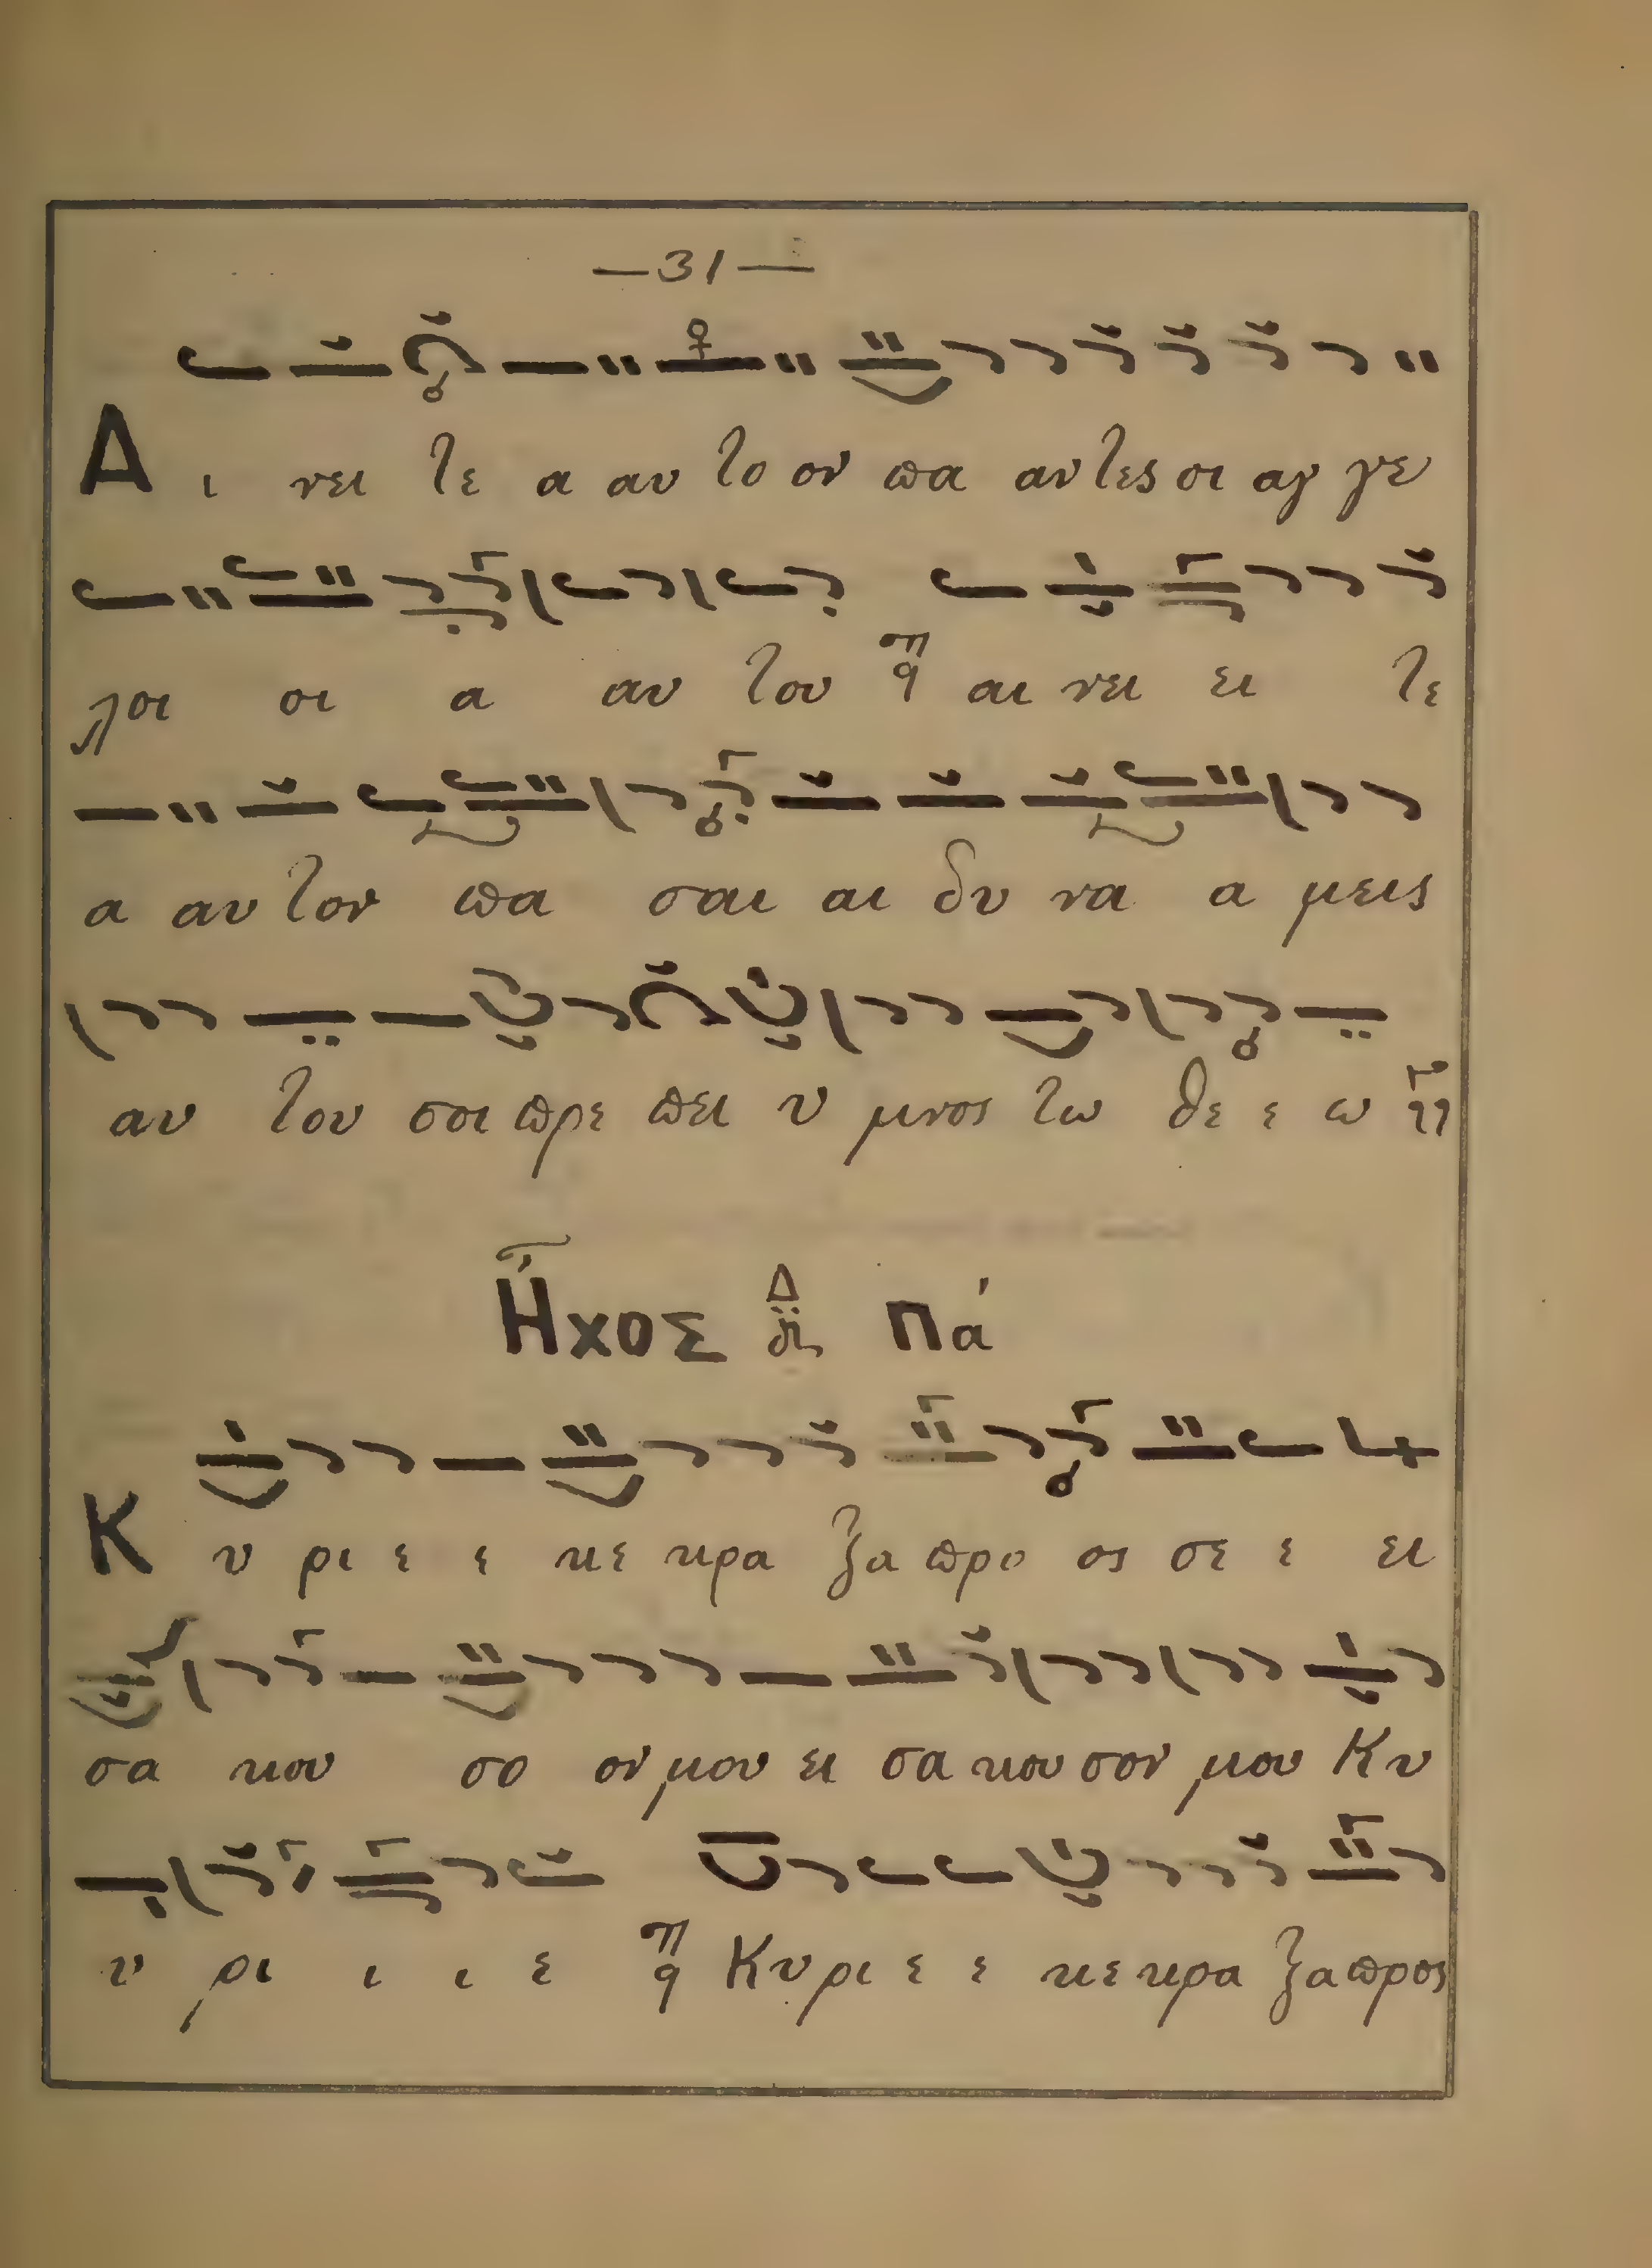 —31—
Α ι νει τε α αυ το ον πα αν τες οι αγ γε
λοι οι α αυ του π q αι νει ει τε
α αυ τον πα σαι αι δυ να α μεις
αυ του σοι πρε πει υ μνος τω θε ε ω
Ἦχος Δ Πα
Κ υ ρι ε ε κε κρα ξα προ ος σε ε ει
σα κου σο ον μου ει σα κου σον μου Κυ
υ ρι ι ι ε π q Κυ ρι ε ε κε κρα ξα προς